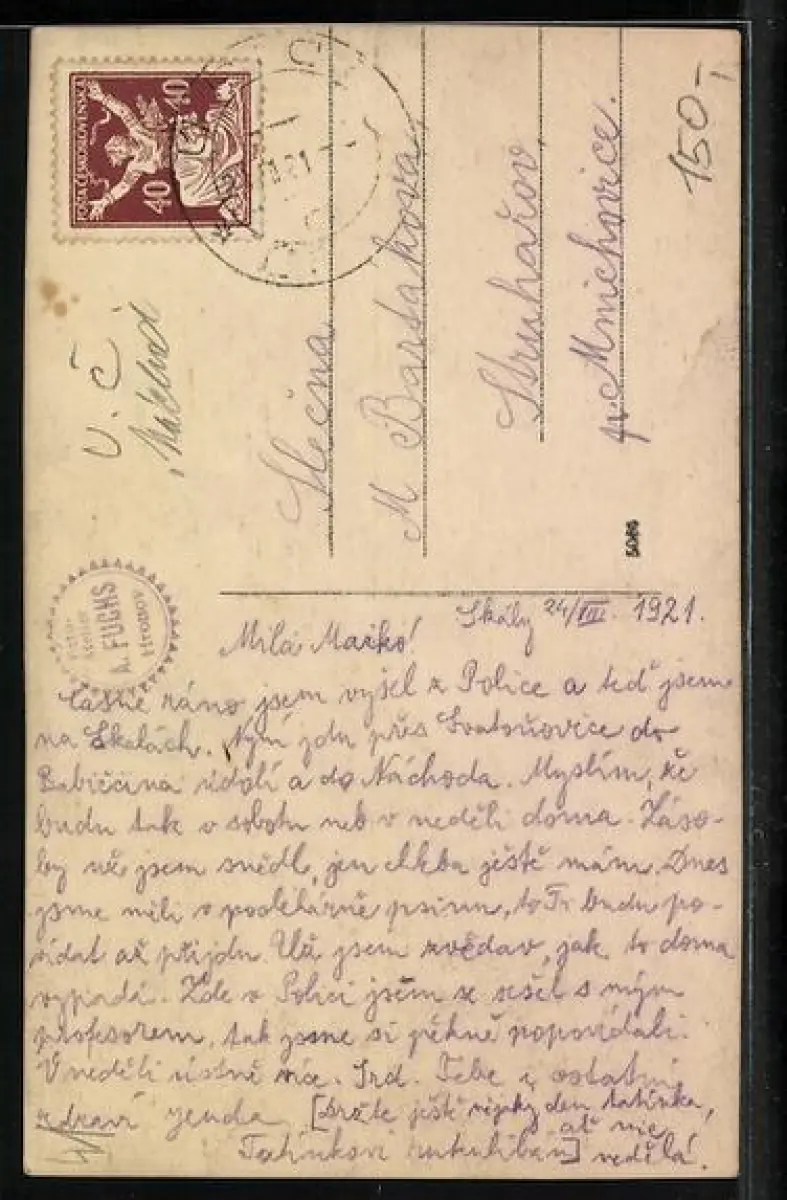 POŠTA ČESKOSLOVENSKÁ
40 40
150,-
U. Č
Slečna
M Bartakova
Struhařov
p. Mnichovice.
5086
A. FUCHS
HRONOV
Skály 24/VIII. 1921.
Milá Mařko!
Časně ráno jsem vyšel z Police a teď jsem
na Skalách. Nyní jdu přes Svatoňovice do
Babiččina údolí a do Náchoda. Myslím, že
budu tak v sobotu neb v neděli doma. Záso-
by už jsem snědl, jen chleba ještě mám. Dnes
jsme měli v noclehárně psinu, to Ti budu po-
vídat až přijdu. Už jsem zvědav, jak to doma
vypadá. Zde v Polici jsem se sešel s mým
profesorem, tak jsme si pěkně popovídali.
V neděli ústně více. Srd. Tebe i ostatní
zdraví Jenda [Držte ještě nějaký den tatínka,
ať nic
Tatínkovi nedělá.